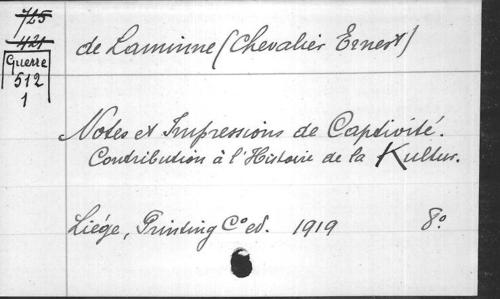 725
421
Guerre
512
1
de Laminne (Chevalier Ernest)
Notes et Impressions de Captivité.
Contribution à l'Histoire de la Kultur.
Liége, Printing C° ed. 1919 8°